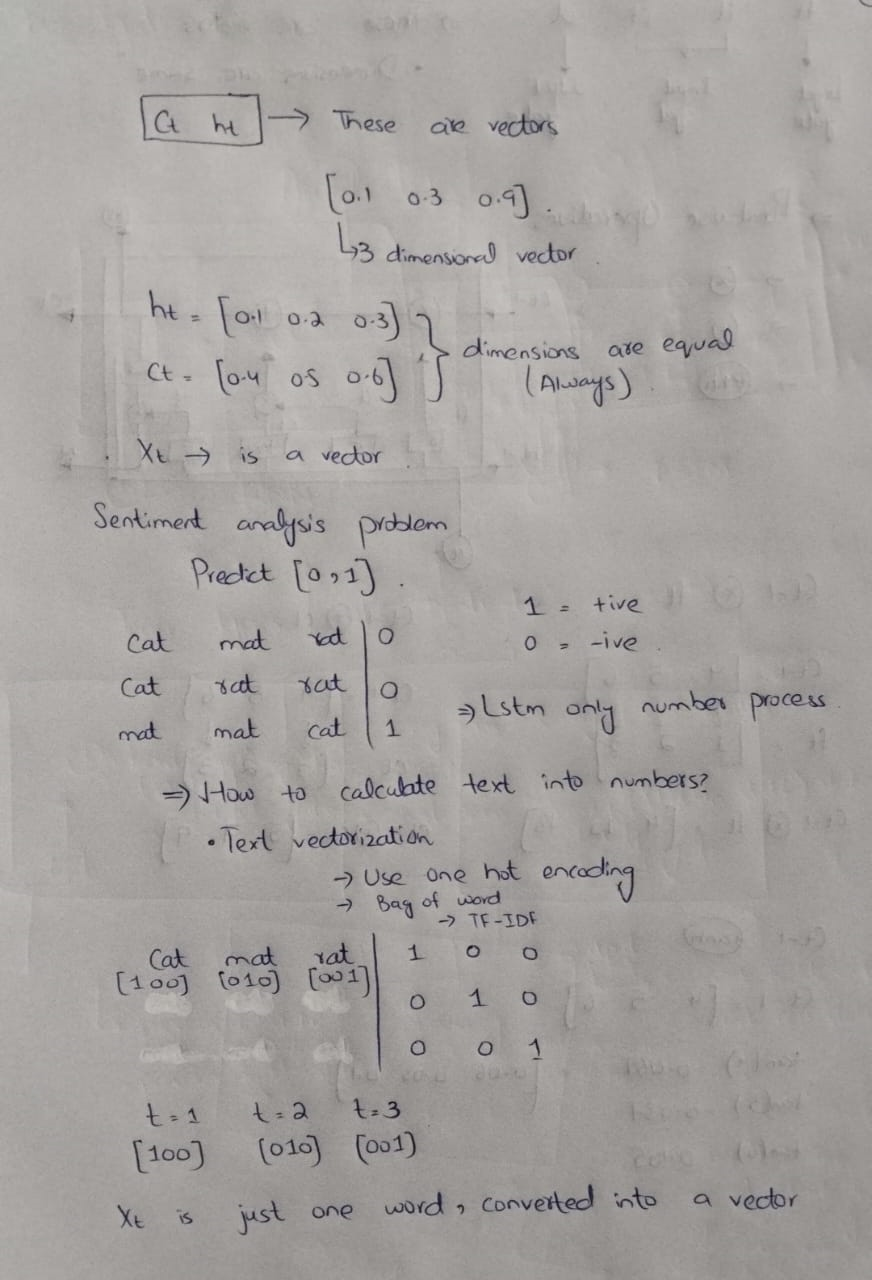 Ct ht → These are vectors
[0.1 0.3 0.9].
↳3 dimensional vector.
ht = [0.1 0.2 0.3]
dimensions are equal
Ct = [0.4 05 0.6]
(Always).
. Xt → is a vector.
Sentiment analysis problem
Predict [0,1].
1 = +ive
Cat mat rat 0
0 = -ive.
Cat rat rat 0
⇒ Lstm only number process.
mat mat cat 1
⇒ How to calculate text into numbers?
• Text vectorization
→ Use one hot encoding
→ Bag of word
→ TF-IDF
Cat mat rat 1 0 0
[100] [010] [001]
0 1 0
0 0 1
t=1 t=2 t=3
[100] [010] [001]
Xt is just one word, converted into a vector